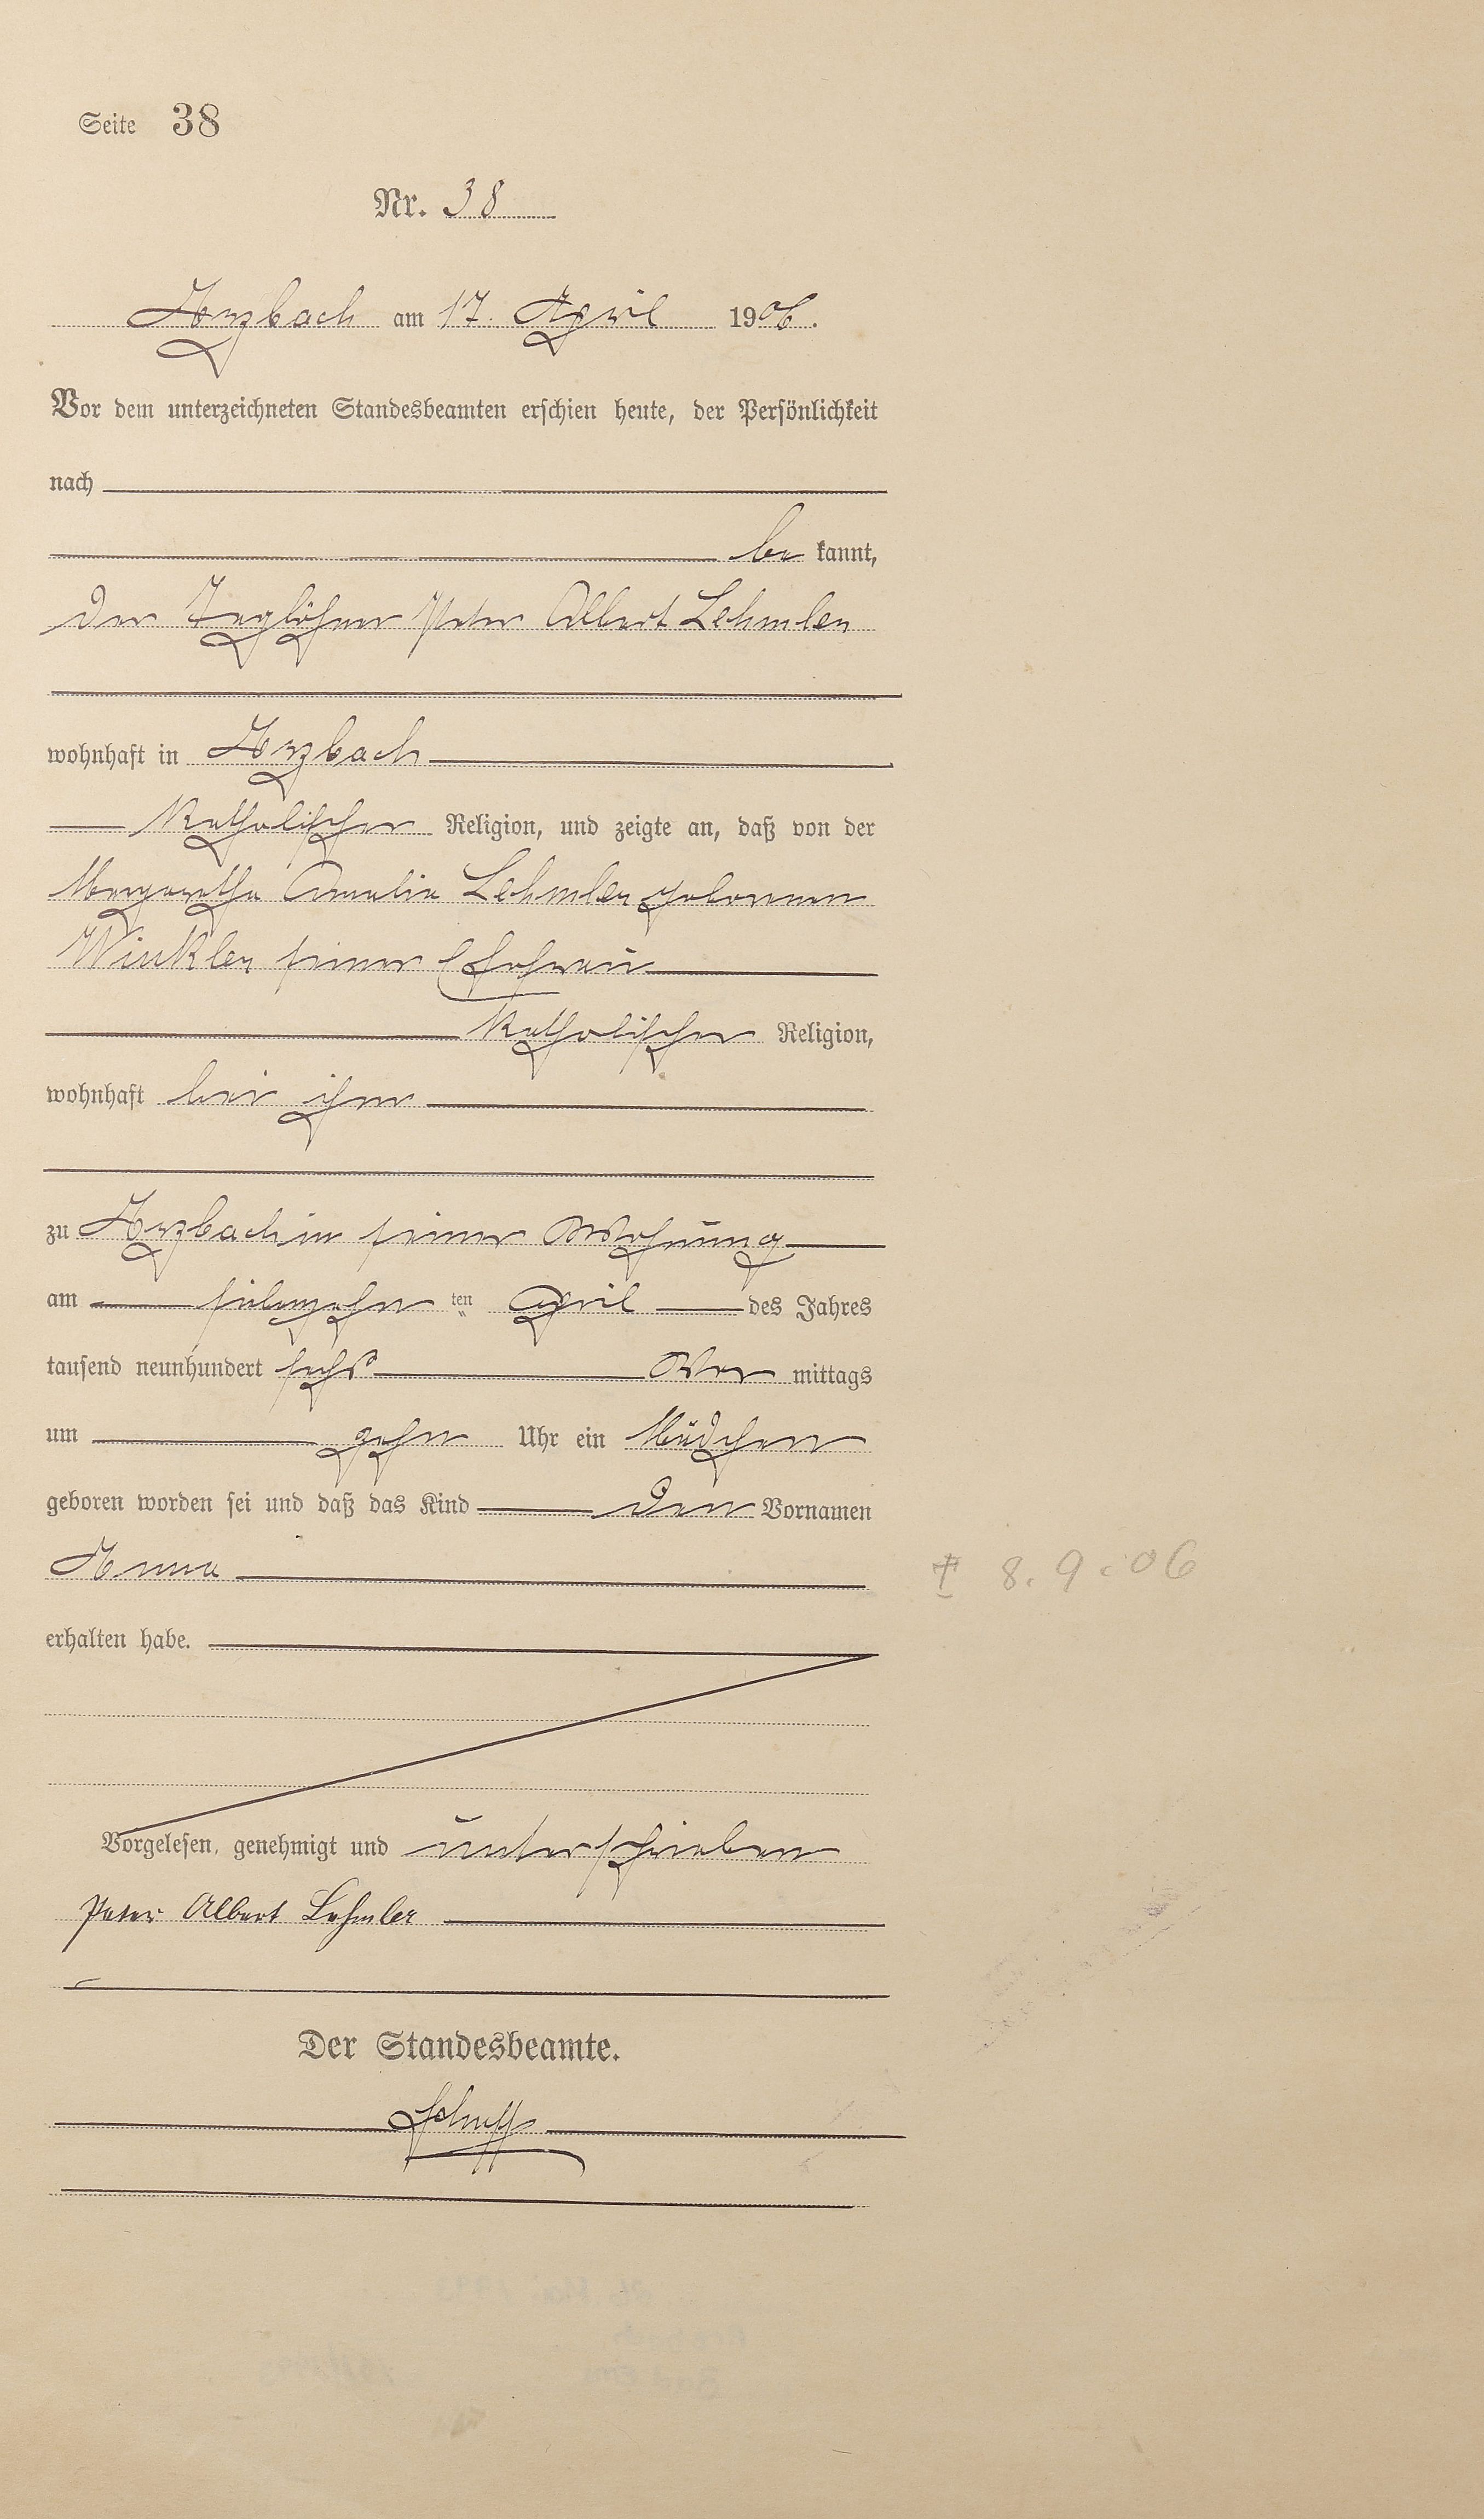 Seite 38
Nr. 38
Arzbach am 17. April 1906.
Vor dem unterzeichneten Standesbeamten erschien heute, der Persönlichkeit
nach
be kannt,
der Taglöhner Peter Albert Lehmler
wohnhaft in Arzbach
katholischer Religion, und zeigte an, daß von der
Margaretha Amalia Lehmler geborenen
Winkler seiner Ehefrau
katholischer Religion,
wohnhaft bei ihm
zu Arzbach in seiner Wohnung
am siebenzehn ten April des Jahres
tausend neunhundert sechs Vor mittags
um zehn Uhr ein Mädchen
geboren worden sei und daß das Kind den Vornamen
Anna
† 8. 9. 06
erhalten habe.
Vorgelesen, genehmigt und unterschrieben
Peter Albert Lehmler
Der Standesbeamte.